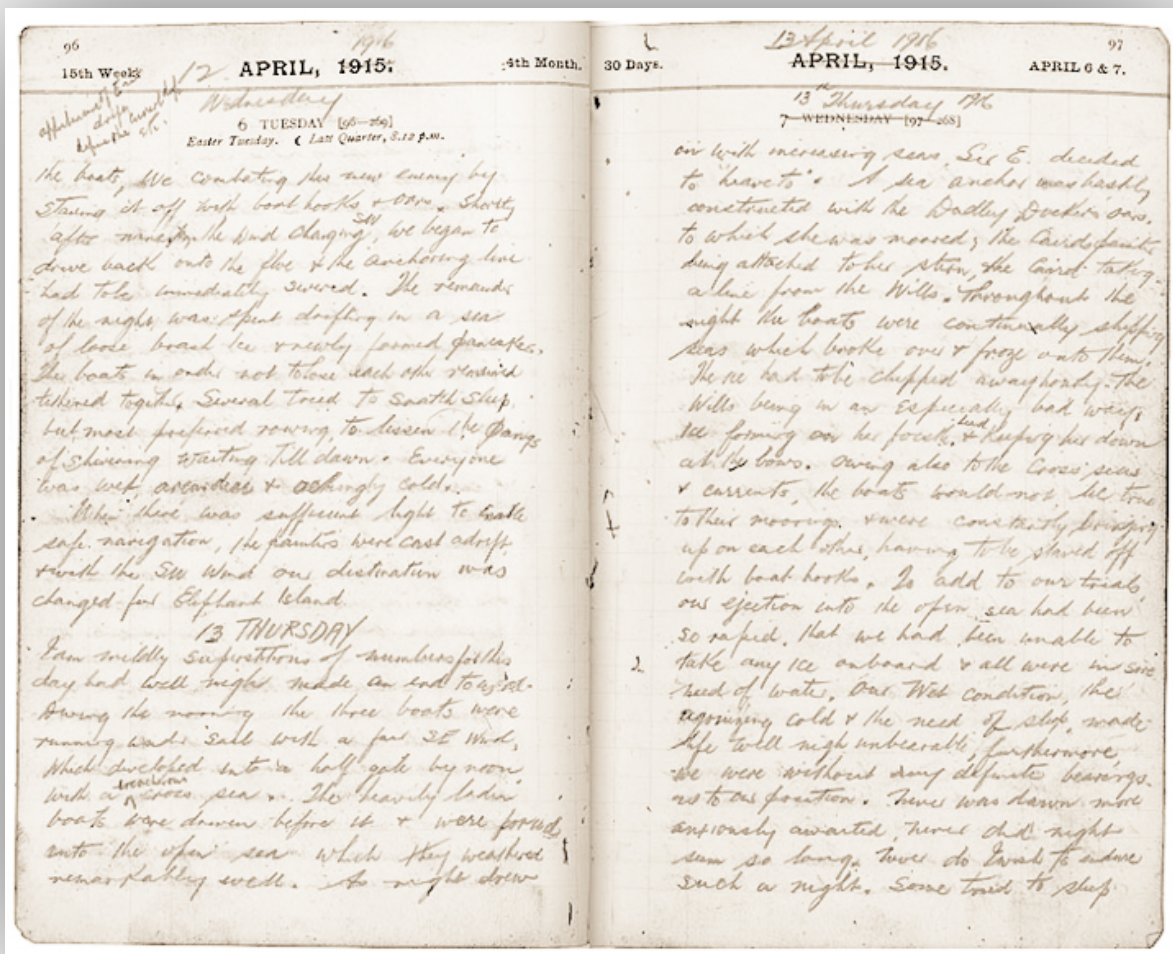 96
1916
15th Week
12 APRIL, 1915.
4th Month.
Wednesday
6 TUESDAY [96—269]
Easter Tuesday. ☾ Last Quarter, 8.12 p.m.
the boats, We combating this new enemy by
staving it off with boat hooks & oars. Shortly
after nine pm the wind changing SW, we began to
drive back onto the floe & the anchoring line
had to be immediately severed. The remainder
of the night, was spent drifting in a sea
of loose brash ice & newly formed pancakes.
The boats in order not to lose each other remained
tethered together. Several tried to snatch sleep,
but most preferred rowing, to lessen the pangs
of shivering waiting till dawn. Everyone
was wet & achingly cold.
When there was sufficient light to enable
safe navigation, the painters were cast adrift
& with the SW Wind our destination was
changed for Elephant Island
13 THURSDAY
I am mildly superstitious of numbers for this
day had well nigh made an end to us all.
During the morning the three boats were
running under sail with a fair SE Wind,
Which developed into a half gale by noon,
with a cross sea. The heavily laden
boats were driven before it & were forced
into the open sea which they weathered
remarkably well. As night drew
13 April 1916
97
30 Days.
APRIL, 1915.
APRIL 6 & 7.
13th Thursday 1916
7 WEDNESDAY [97—268]
on with increasing seas, Sir E. decided
to "heave to". A sea anchor was hastily
constructed with the Dudley Dockers oars.
to which she was moored; the Cairds painter
being attached to her stern, the Caird taking
a line from the Wills. Throughout the
night the boats were continually shipping
seas which broke over & froze onto them.
The ice had to be chipped away hourly. The
Wills being in an Especially bad way,
Ice forming on her & keeping her down
at the bows. Owing also to the Cross seas
& currents, the boats would not lie true
to their moorings & were constantly bringing
up on each other, having to be staved off
with boat hooks. To add to our trials,
our ejection into the open sea had been
so rapid, that we had been unable to
2
take any Ice onboard & all were in sore
need of water. Our Wet condition, the
agonizing cold & the need of sleep, made
life well nigh unbearable, furthermore
we were without any definite bearings
as to our position. Never was dawn more
anxiously awaited, never did night
seem so long. Never do I wish to endure
such a night. Some tried to sleep